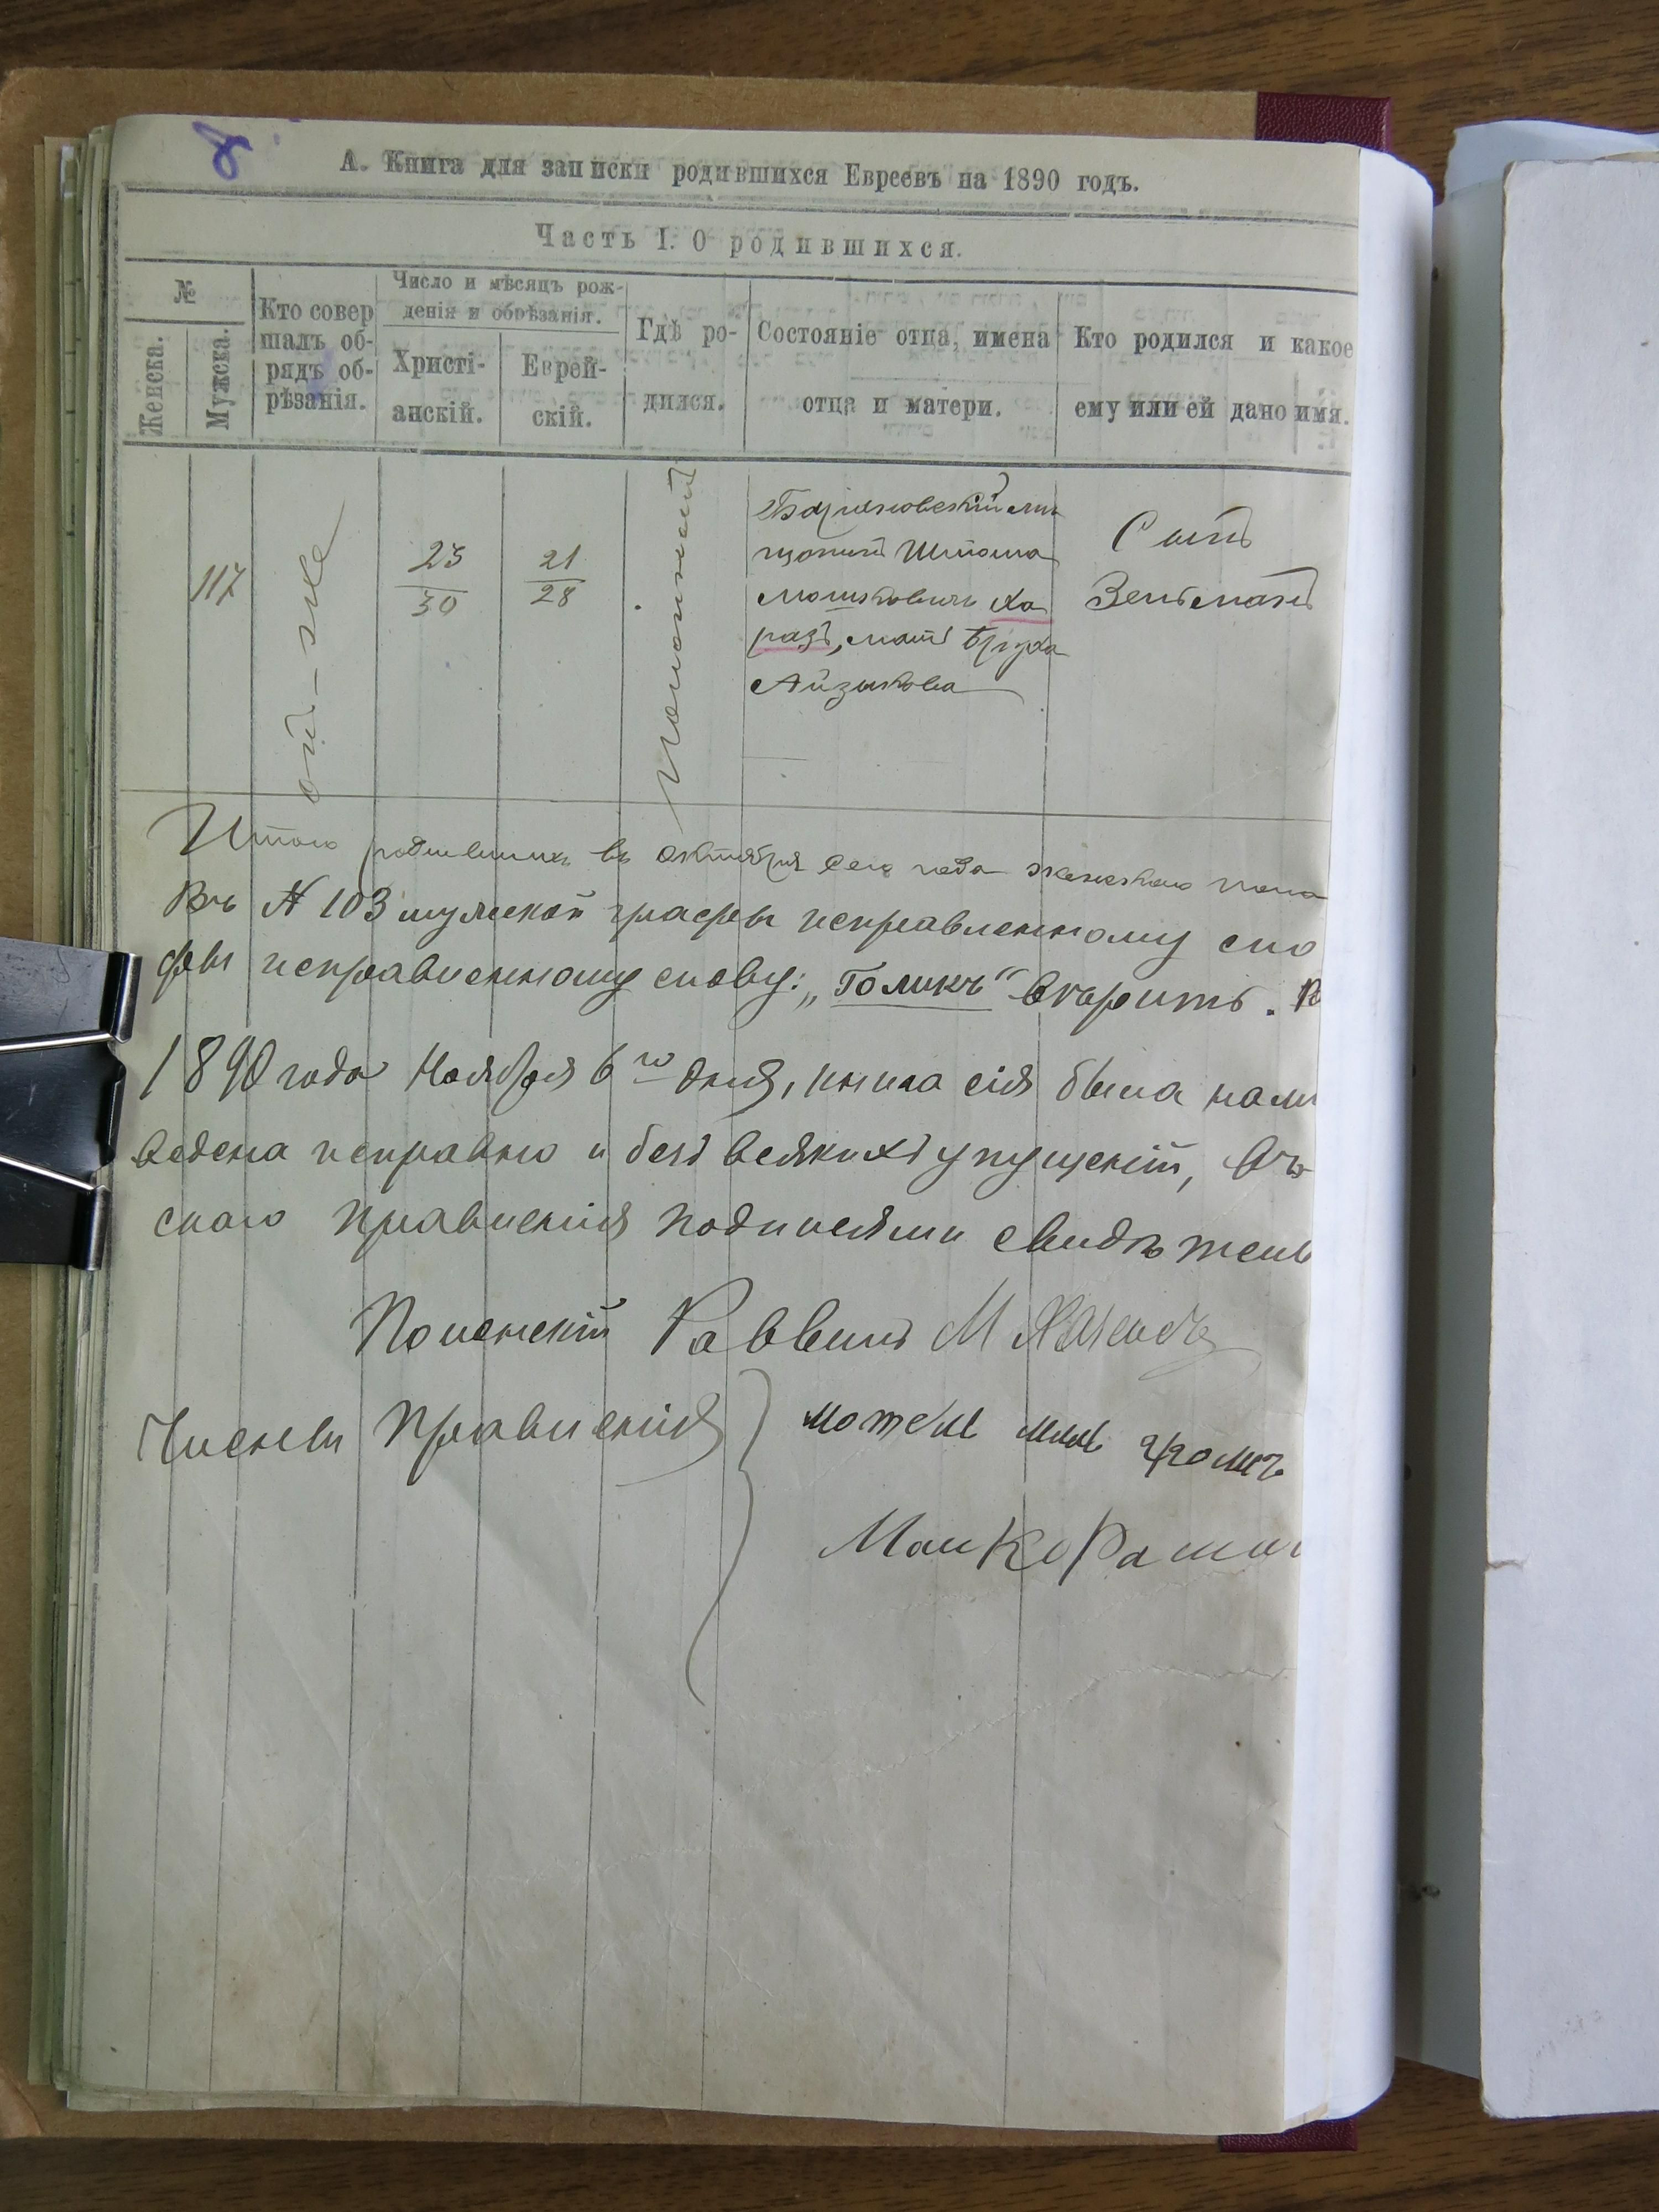 8
А. Книга для записки родившихся Евреевъ на 1890 годъ.
Часть I. О родившихся.
№
Женска.
Мужска.
Кто совер
шалъ об-
рядъ об-
рѣзанія.
Число и мѣсяцъ рож-
денія и обрѣзанія.
Христі-
анскій.
Еврей-
скій.
Гдѣ ро-
дился.
Состояніе отца, имена
отца и матери.
Кто родился и какое
ему или ей дано имя.
117
ой-же
23
30
21
28
Полонной
мѣ
щанинъ Шлома
Мошковичъ Ха
разъ, мать Бруха
Айзикова
Сынъ
Зельманъ
Итого родившихся въ Октября сего года женскаго пола
Въ № 103 мужской графы исправленному сло
фы исправленному слову: „Голикъ" вѣрить. В
1890 года Ноября 6го дня, книга сія была нами
ведена исправно и безъ всякихъ упущеній, въ
скаго правленія подписями свидѣтель
Полонскій Раввинъ М
Члены Правленія
Мотель